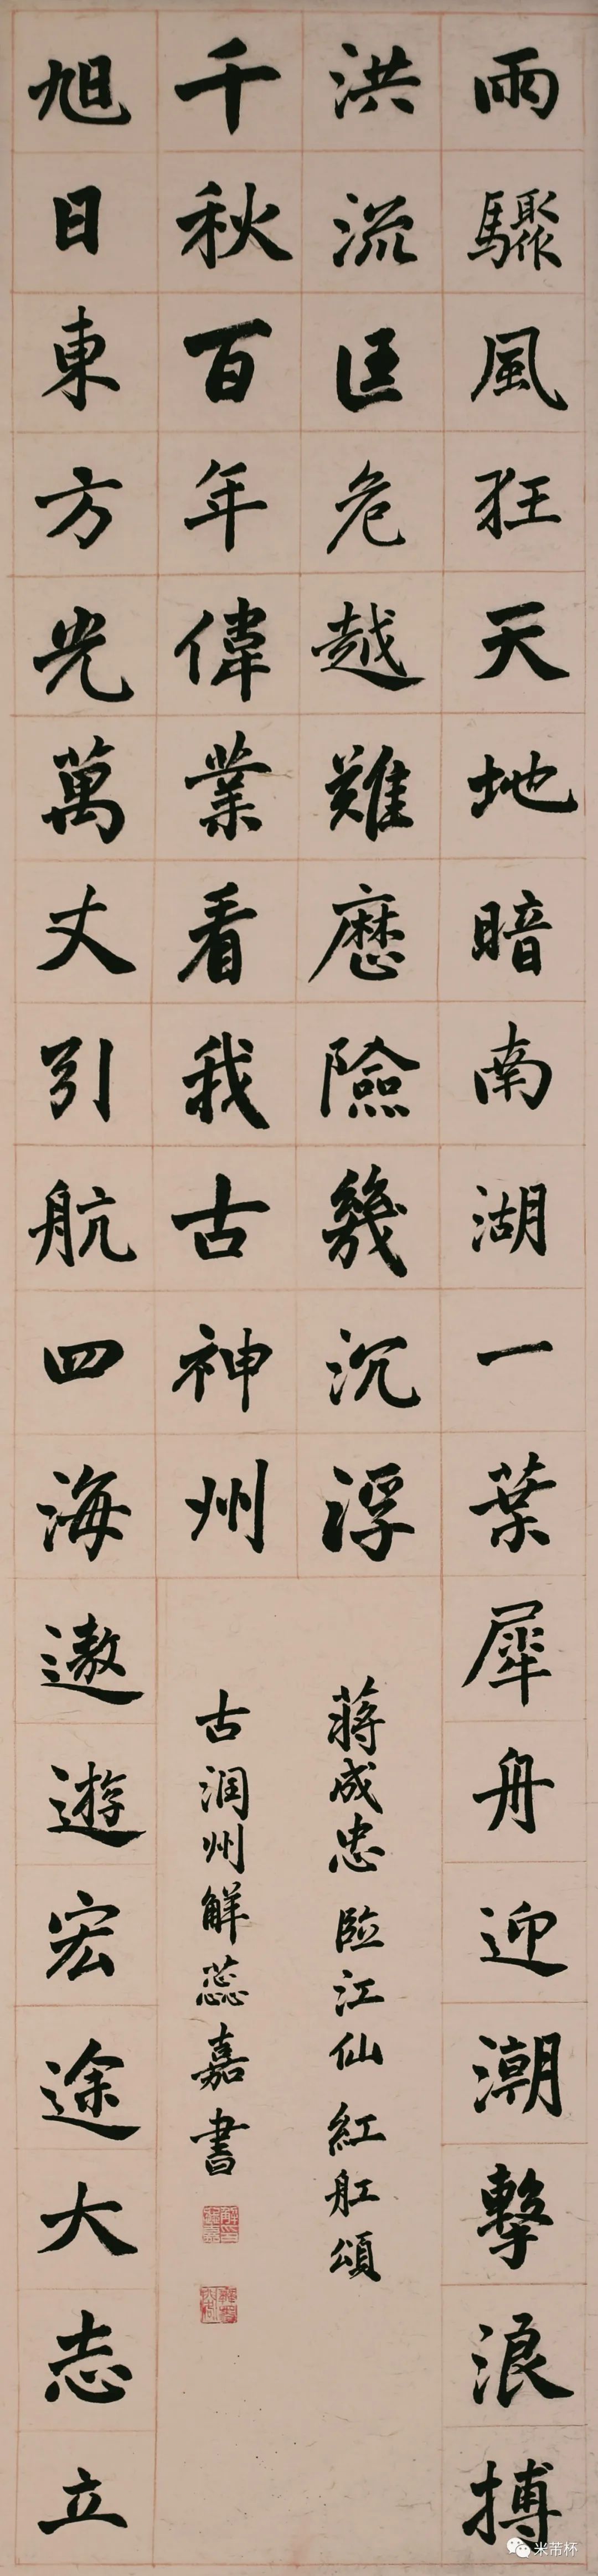 雨驟風狂天地暗南湖一葉犀舟迎潮擊浪搏
洪流匡危越難歷險幾沉浮
旭日東方光萬丈引航四海遨遊宏途大志立
千秋百年偉業看我古神州
蔣成忠臨江仙紅舡頌
古润州觧蕊嘉書
米芾杯